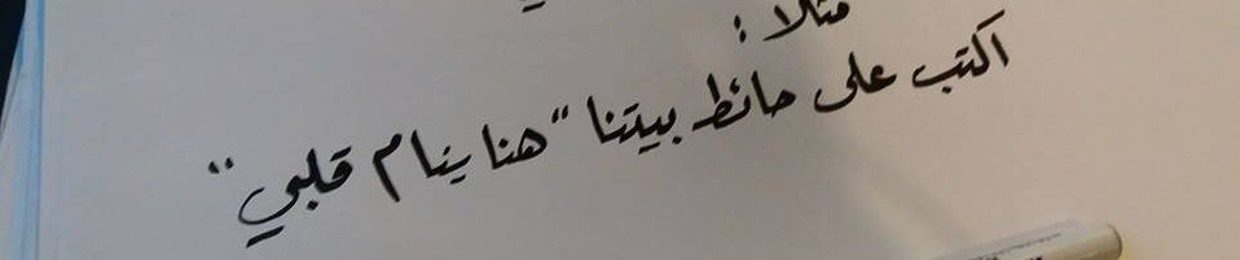 مثلا :
اكتب على حائط بيتنا "هنا ينام قلبي"